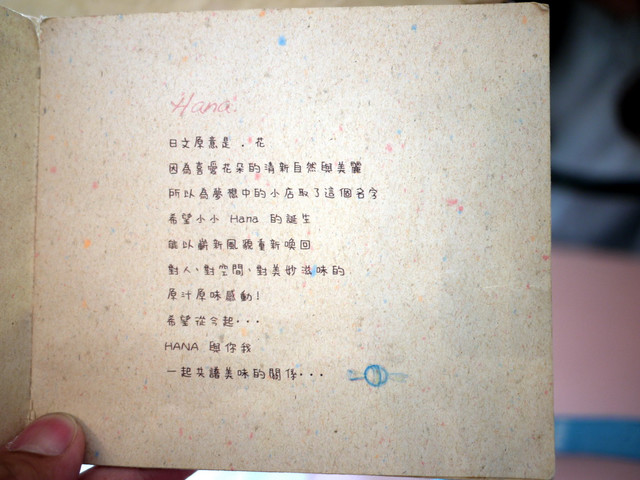 Hana
日文原意是．花
因為喜愛花朵的清新自然與美麗
所以為夢想中的小店取了這個名字
希望小小 Hana 的誕生
能以嶄新風貌重新喚回
對人、對空間、對美妙滋味的
原汁原味感動！
希望從今起···
HANA 與你我
一起共譜美味的關係···